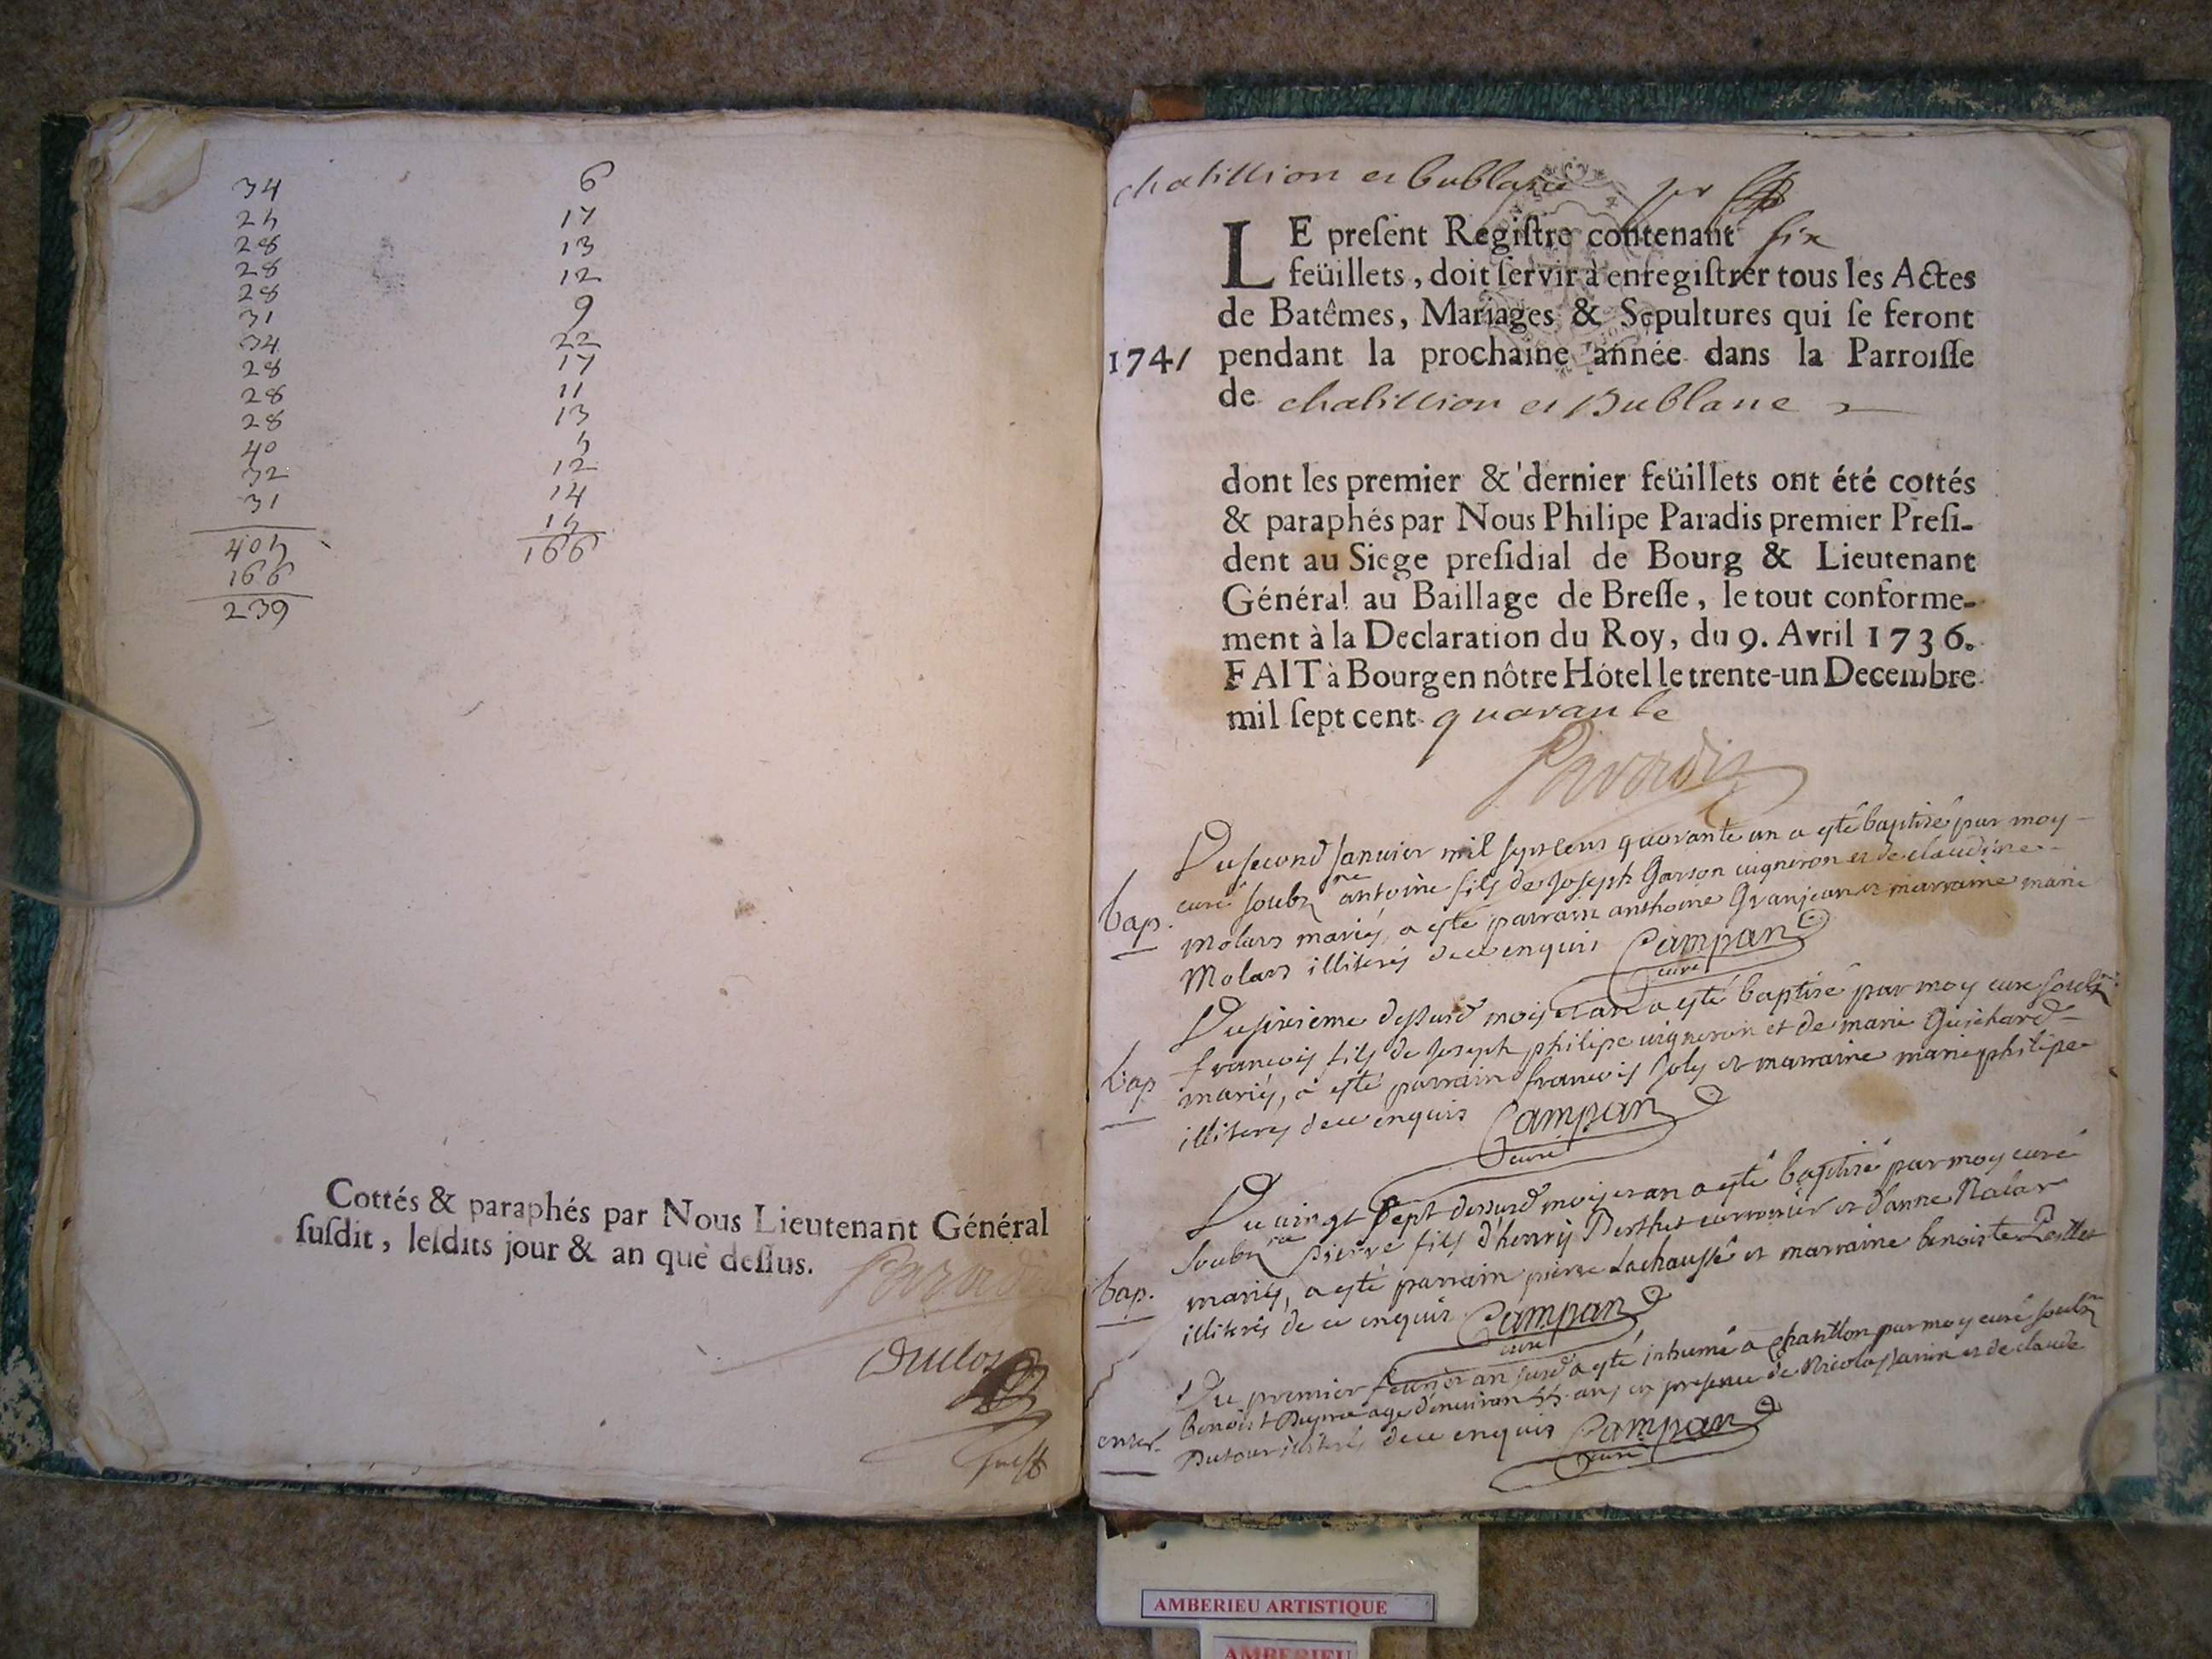 34
24
28
28
28
31
34
28
28
28
40
32
31
404
166
239
6
17
13
12
9
22
17
11
13
5
12
14
15
166
Cottés & paraphés par Nous Lieutenant Général
ſuſdit, leſdits jour & an que deſſus.
Paradis
Duclos
chatillion et bublane
LE preſent Regiſtre contenant six
feüillets, doit ſervir à enregiſtrer tous les Actes
de Batêmes, Mariages & Sepultures qui ſe feront
1741 pendant la prochaine année dans la Parroiſſe
de chatillion et Bublane
dont les premier & dernier feüillets ont été cottés
& paraphés par Nous Philipe Paradis premier Preſi-
dent au Siege preſidial de Bourg & Lieutenant
Général au Baillage de Breſſe, le tout conforme-
ment à la Declaration du Roy, du 9. Avril 1736.
FAIT à Bourg en nôtre Hôtel le trente-un Decembre
mil ſept cent quarante
Paradis
Du second Janvier mil sept cens quarante un a esté baptisé par moy
bap. curé soubzne antoine fils de Joseph Garson vigneron et de claudine
Molars mariés, a esté parrain anthoine Granjean et marraine marie
Molars illiterés de ce enquis Campan
curé
Du sixieme dessusd mois et an a esté baptisé par moy curé soubzne
bap francois fils de Joseph philipe vigneron et de marie Guichard
mariés, a esté parrain francois Joly et marraine marie philipe
illiterés de ce enquis Campan
curé
Du vingt sept dessusd mois et an a esté baptisé par moy curé
soubzne pierre fils d'henrij Berthet et d'anne Nalar
bap. mariés, a esté parrain pierre Lachaussé et marraine benoiste
illiterés de ce enquis Campan
curé
Du premier fevrier an susd a esté inhumé a chatillon par moy curé soubzne
Benoist agé d'environ 55 ans en presence de Nicolas et de claude
enter. Dutour illiterés de ce enquis Campan
curé
AMBERIEU ARTISTIQUE
AMBERIEU